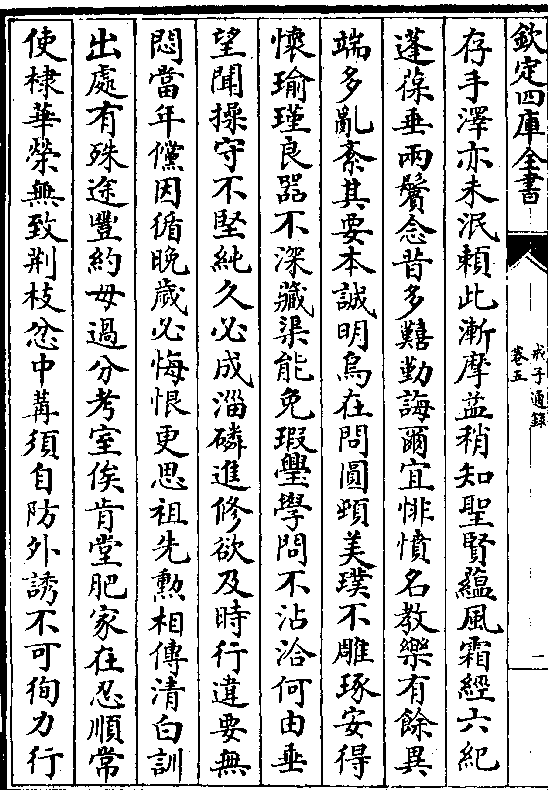 欽定四庫全書
戒子通錄
卷五
一
存手澤亦未泯賴此漸摩益稍知聖賢蘊風霜經六紀
蓬葆垂兩鬢念昔多囏勤誨爾宜悱憤名教樂有餘異
端多亂紊其要本誠明烏在問圓頭美璞不雕琢安得
懷瑜瑾良器不深藏渠能免瑕舋學問不沾洽何由垂
望聞操守不堅純久必成淄磷進修欲及時行違要無
悶當年儻因循晚歲必悔恨更思祖先勲相傳清白訓
出處有殊途豐約毋過分考室俟肯堂肥家在忍順常
使棣華榮無致荆枝忿中冓須自防外誘不可徇力行